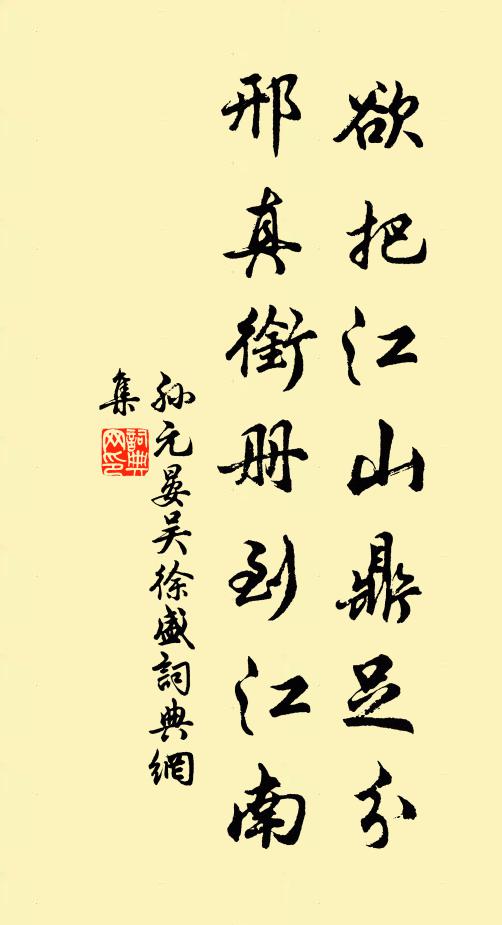 欲把江山鼎足分
邢真銜册到江南
孙元晏吴徐盛詞典網
集
詞典
网印